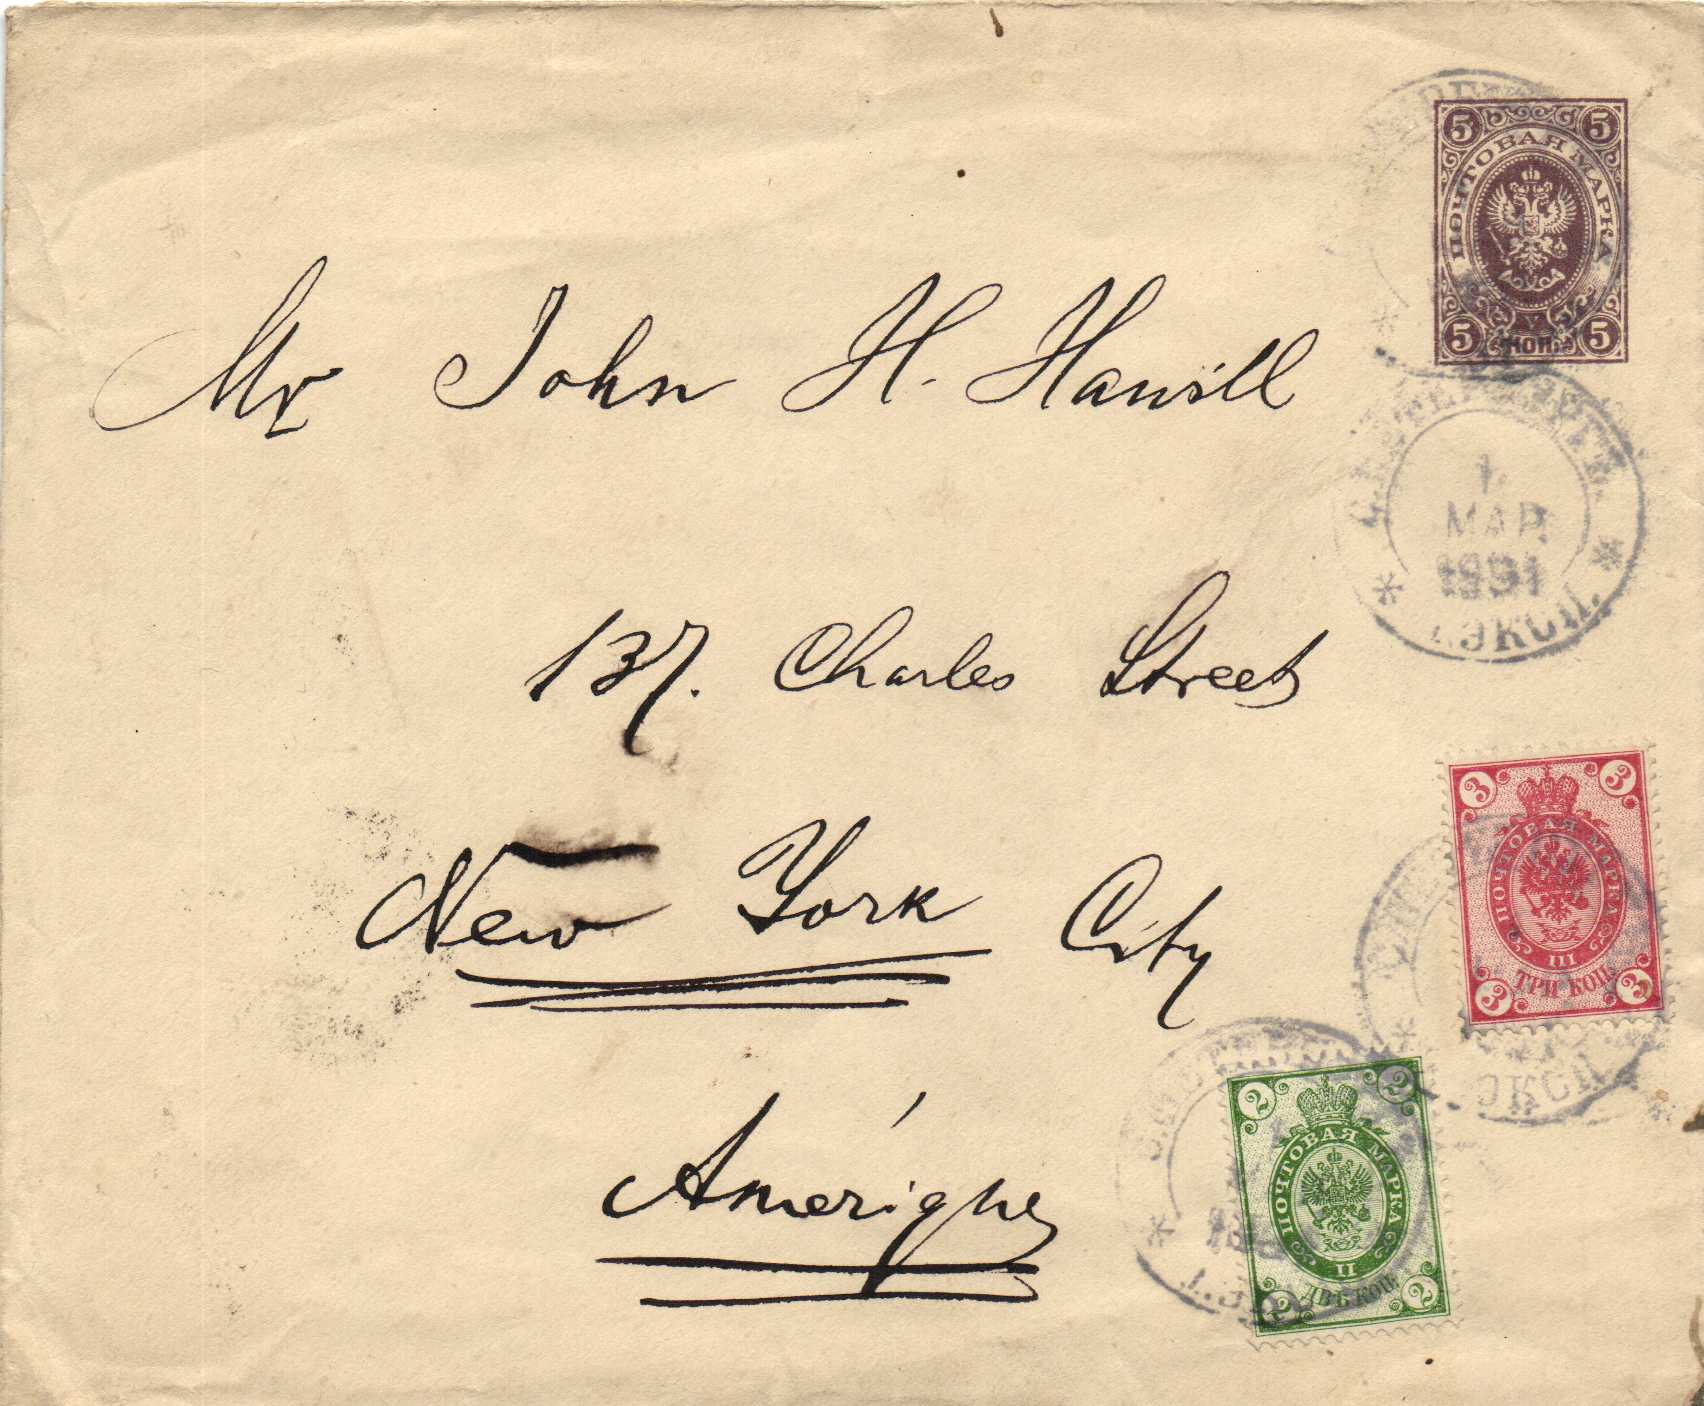 5 5
ПОЧТОВАЯ МАРКА
5 КОП. 5
Mr John H. Hawill
С.ПЕТЕРБУРГЪ.
1.
МАР.
1891
ЭКСП.
137. Charles Street
3 3
ПОЧТОВАЯ МАРКА
III
3 ТРИ КОП. 3
ЭКСП.
New York City
2 2
ПОЧТОВАЯ МАРКА
II
2 ДВѢ КОП. 2
Amérique